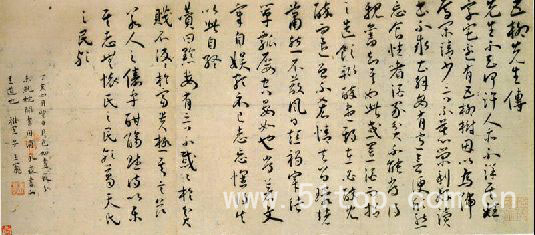 五柳先生傳
先生不知何許人亦不詳其姓
字宅邊有五柳樹因以為號
焉閑靖少言不慕榮利好讀
書不求甚解每有會意便欣然
忘食性嗜酒家貧不能恒得
親舊知其如此或置酒招
之造飲輒盡期在必醉既
醉而退曾不吝情去留環堵
蕭然不蔽風日短褐穿結
簞瓢屢空晏如也嘗著文
章自娛頗示己志忘懷得失
以此自終
贊曰黔婁有言不戚戚於貧
賤不汲汲於富貴極其言茲
若人之儔乎酣觴賦詩以樂
其志無懷氏之民歟葛天氏
之民歟